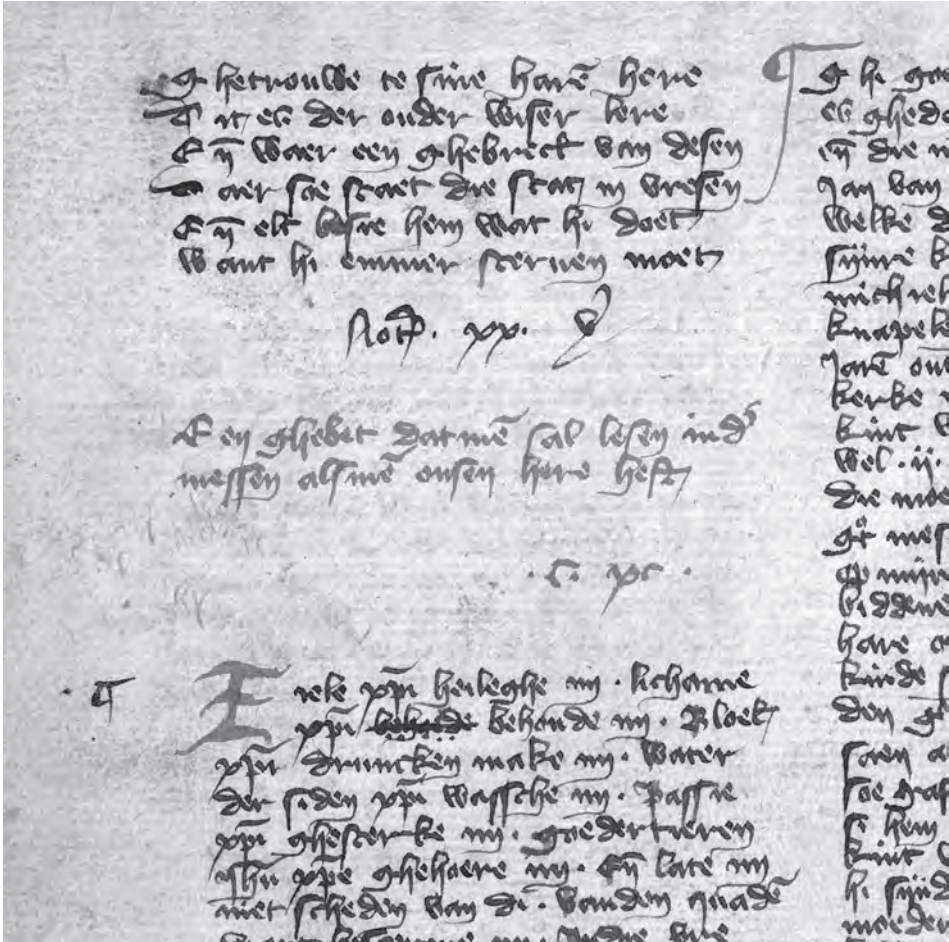 Ghetrouwe te sine harē here
Dit es der ouder wiser lere
Eñ waer een ghebreck van desen
Daer soe staet die stat in vresen
Eñ elc besie hem wat hi doet
Want hi emmer sterven moet
Not̄. xx. v
Een ghebet datmē sal lesen in dʼ
messen alsmē onsen here heft
. C. xc .
¶ Ziele xp̄i heileghe mi . lichame
xp̄i behoude mi . Bloet
xp̄i druncken make mi . water
der siden xp̄i wassche mi . passie
xp̄i ghesterke mi . goedertieren
ih̄u xp̄e ghehoere mi . Eñ late mi
niet scheden van di . vanden quadē
¶ Ghi
es ghede
eñ die
Jan van
welke
sijnre
michiel
knapel
Jarē out
kerke
kint
wel .ij.
die moe
mijn
biddene
hare
kinde
den
saen
soe
si hem
kint
hi sijnd
moeder